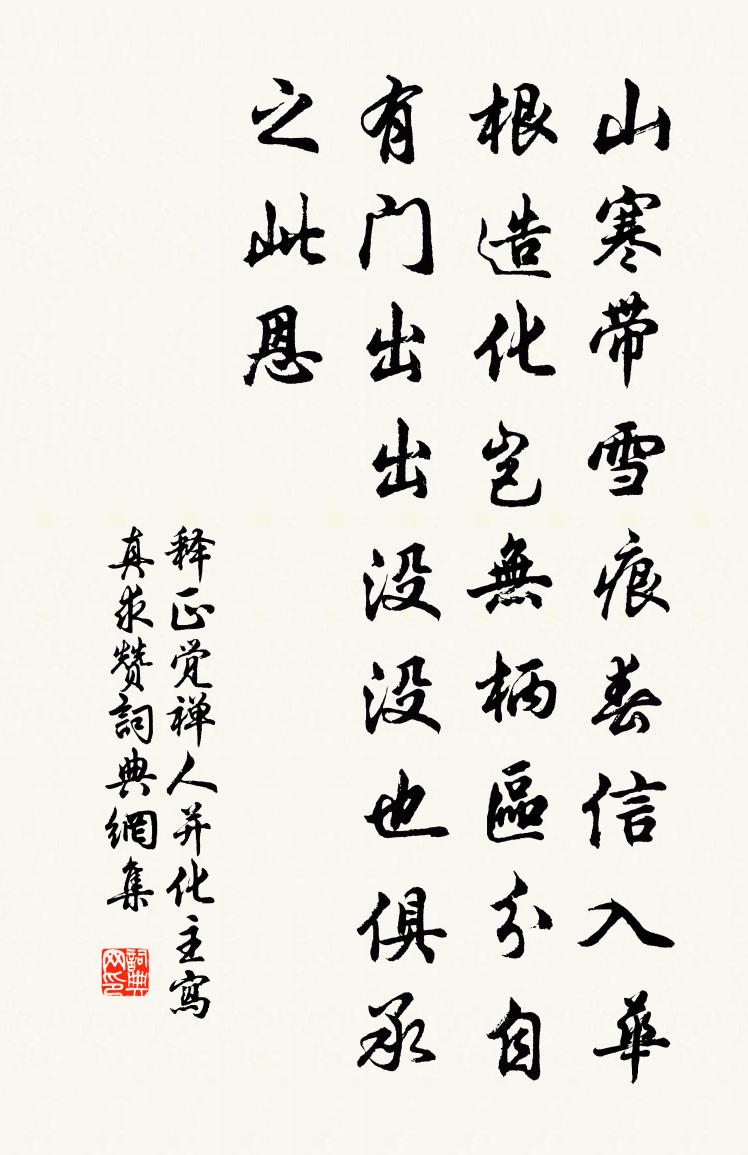 山寒带雪痕春信入華
根造化岂無柄區分自
有门出出没没也俱承
之此恩
释正觉禅人并化主寫
真求赞詞典網集
詞典网印